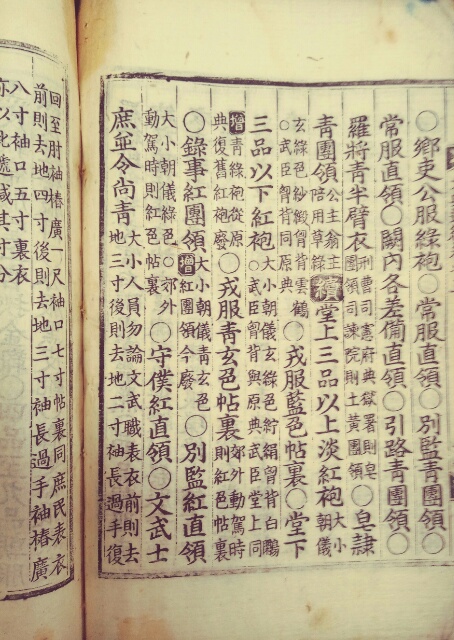 ○鄕吏公服綠袍○常服直領○別監青團領○
常服直領○闕內各差備直領○引路青團領○
羅將青半臂衣刑曹司憲府典獄署則皂團領司諫院則土黃團領○皂隷
青團領公主翁主陪用草綠續堂上三品以上淡紅袍大小朝儀
玄綠色紗緞胷背雲鶴○武臣胷背同原典○戎服藍色帖裏○堂下
三品以下紅袍大小朝儀玄綠色紵絹胷背白鷳○武臣胷背與原典武臣堂上同
增青綠袍從原典復舊紅袍廢○戎服青玄色帖裏郊外動駕時則紅色帖裏
○錄事紅團領增大小朝儀青玄色紅團領今廢○別監紅直領
大小朝儀綠色○郊外動駕時則紅色帖裏○守僕紅直領○文武士
庶並令尚青大小人員勿論文武職表衣前則去地三寸後則去地二寸袖長過手復
回至肘袖樁廣一尺袖口七寸帖裏同庶民表衣
前則去地四寸後則去地三寸袖長過手袖樁廣
八寸袖口五寸裏衣
亦以此遞減其寸分